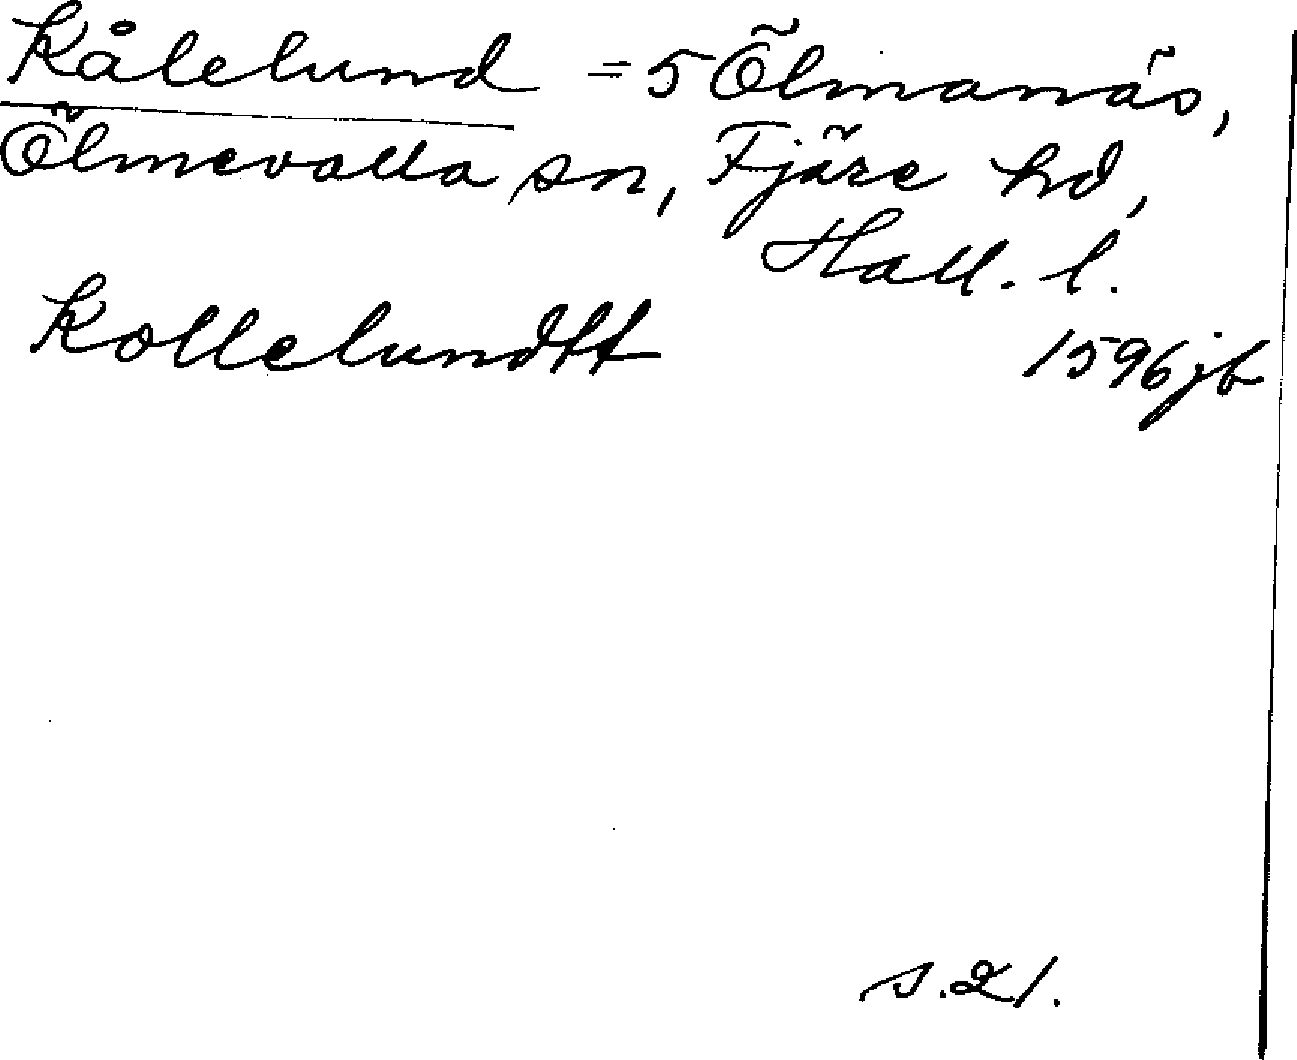 Kålelund = 5 Ölmanäs,
Ölmevalla sn, Fjäre hd,
Hall. l.
Kollelundtt 1596 jb
s. 21.